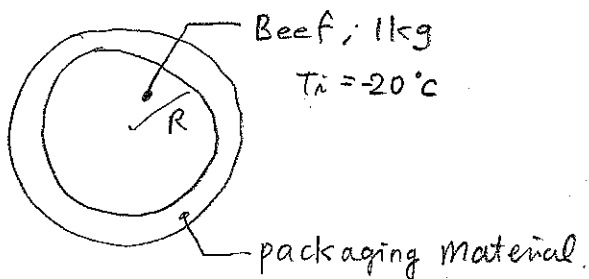 Beef; 1kg
Ti = -20°C
R
packaging material.